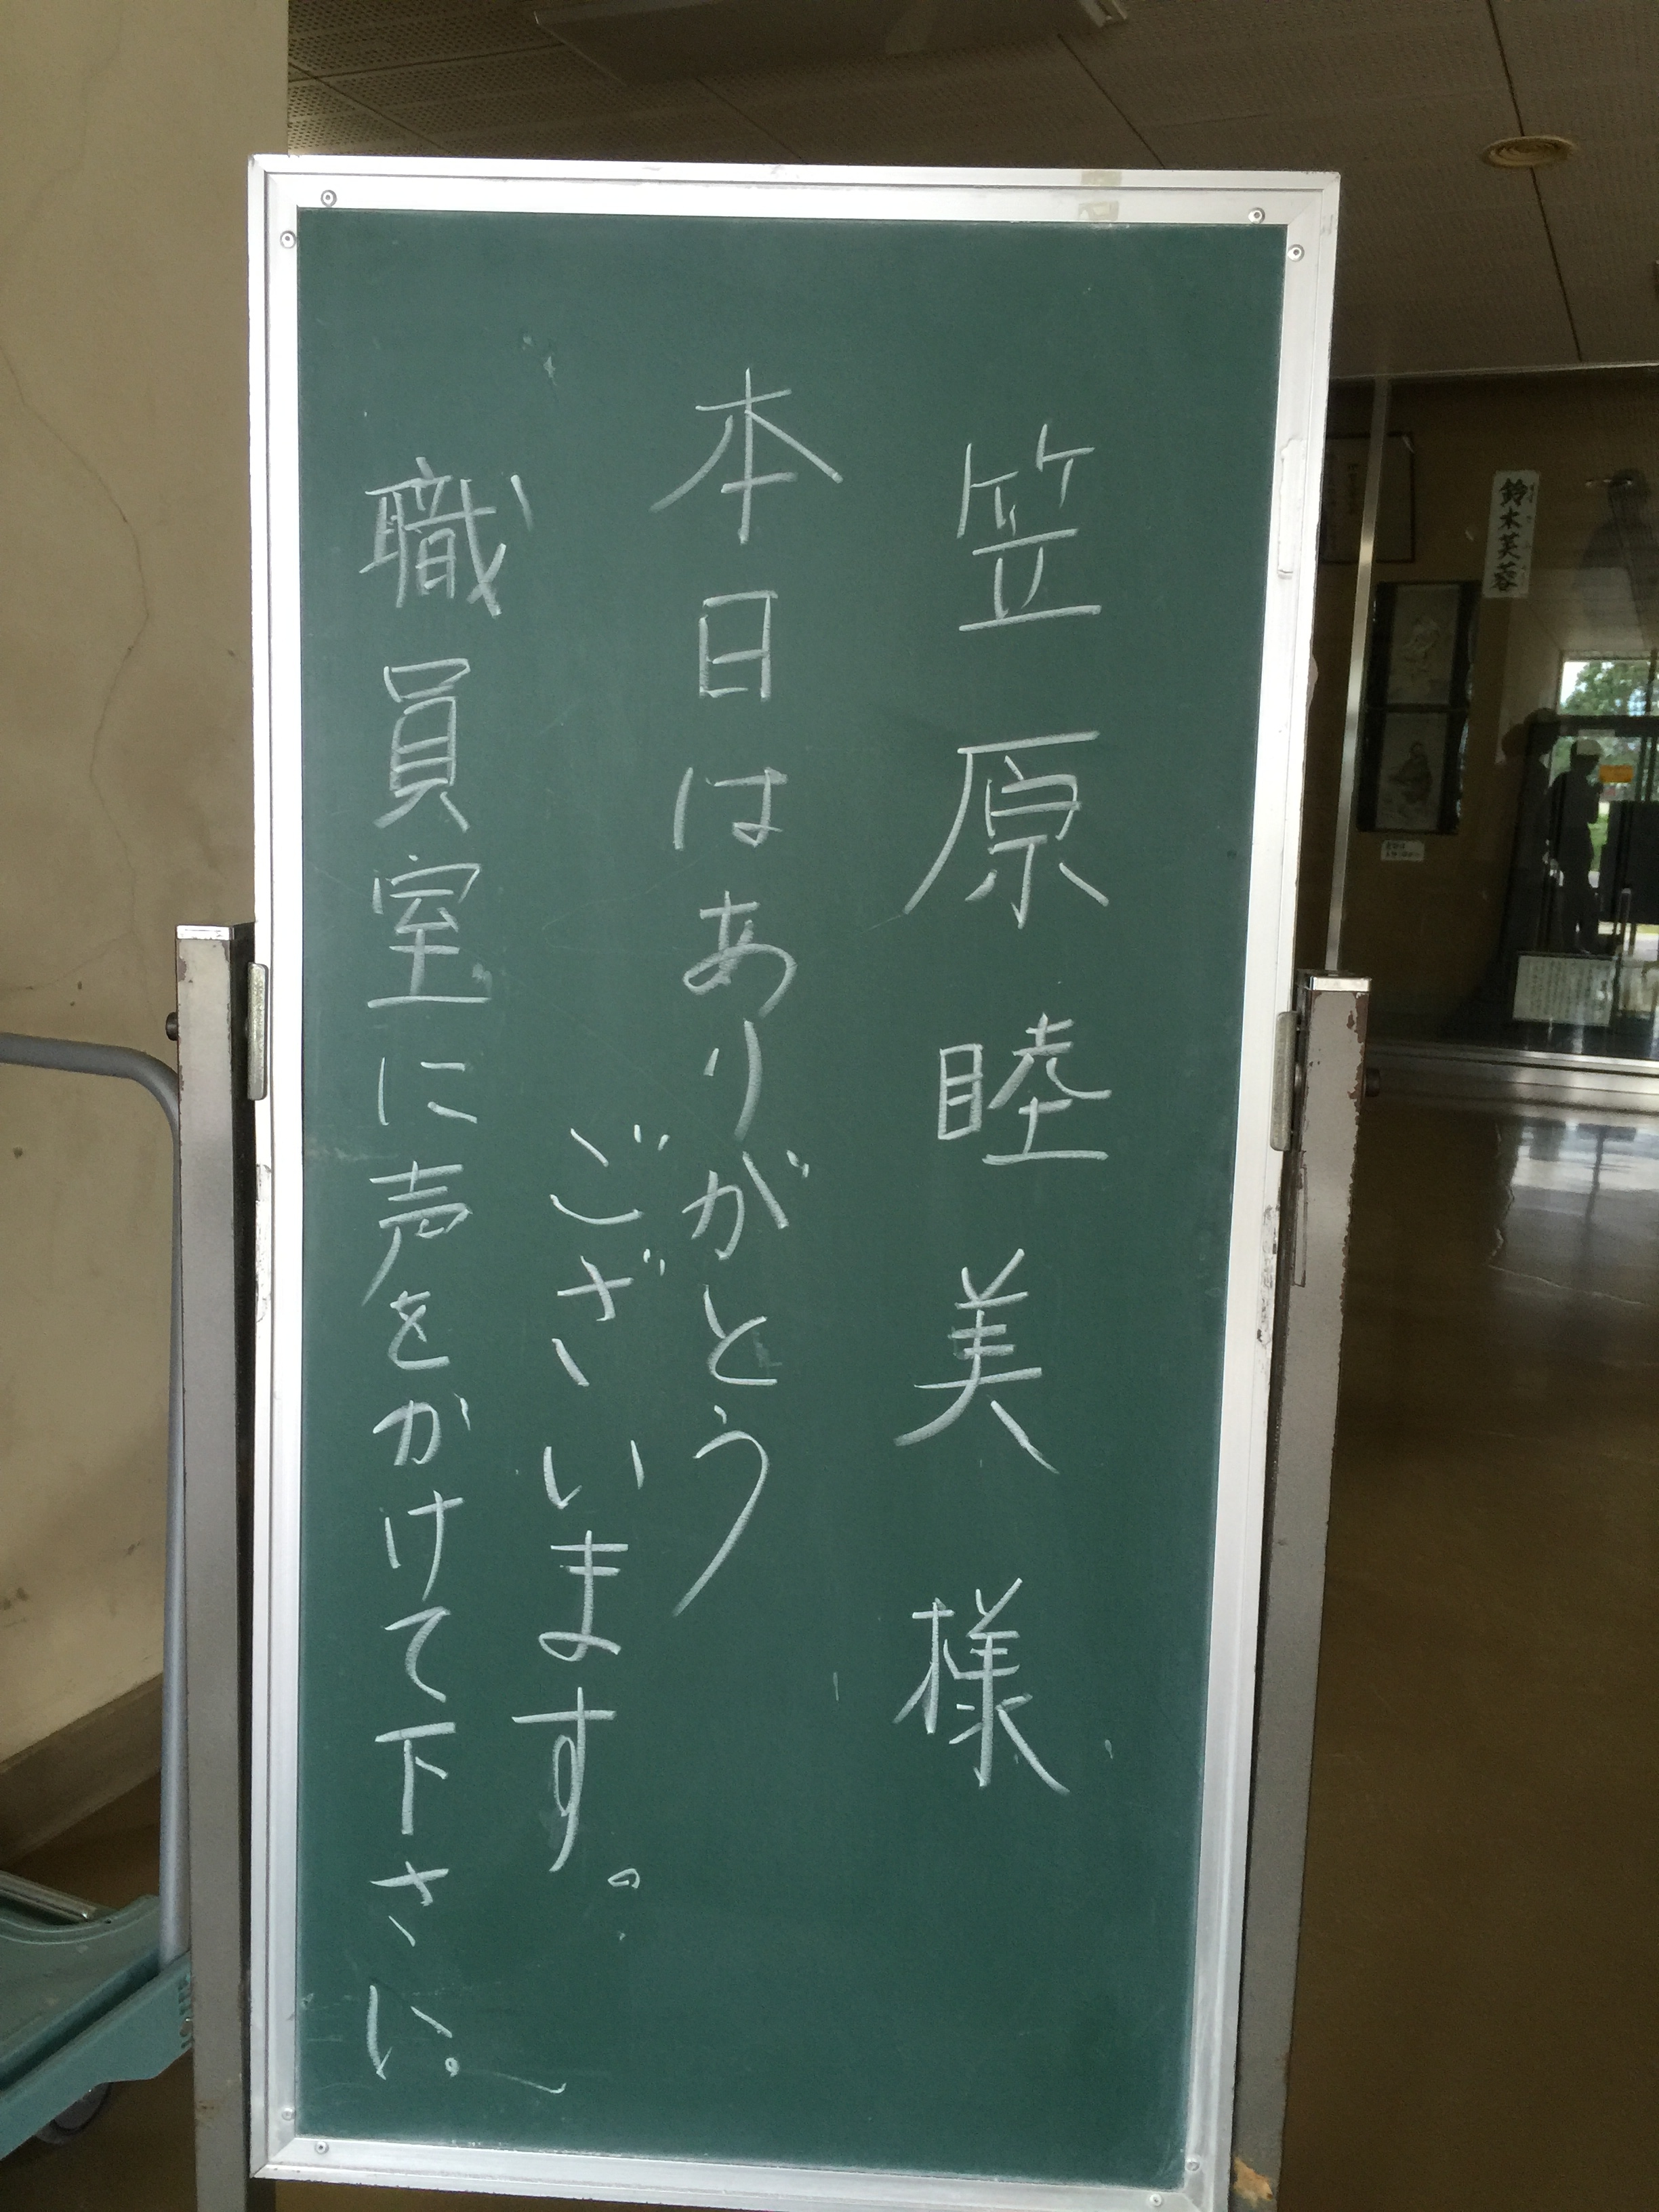 笠原睦美様
本日はありがとう
ございます。
職員室に声をかけて下さい。
鈴木芙蓉